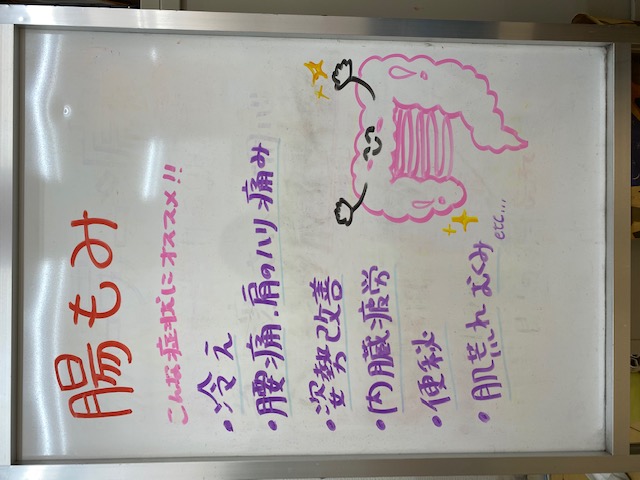 腸もみ
こんな症状にオススメ!!
・冷え
・腰痛、肩のハリ 痛み
・姿勢改善
・内臓疲労
・便秘
・肌荒れ むくみ
etc...